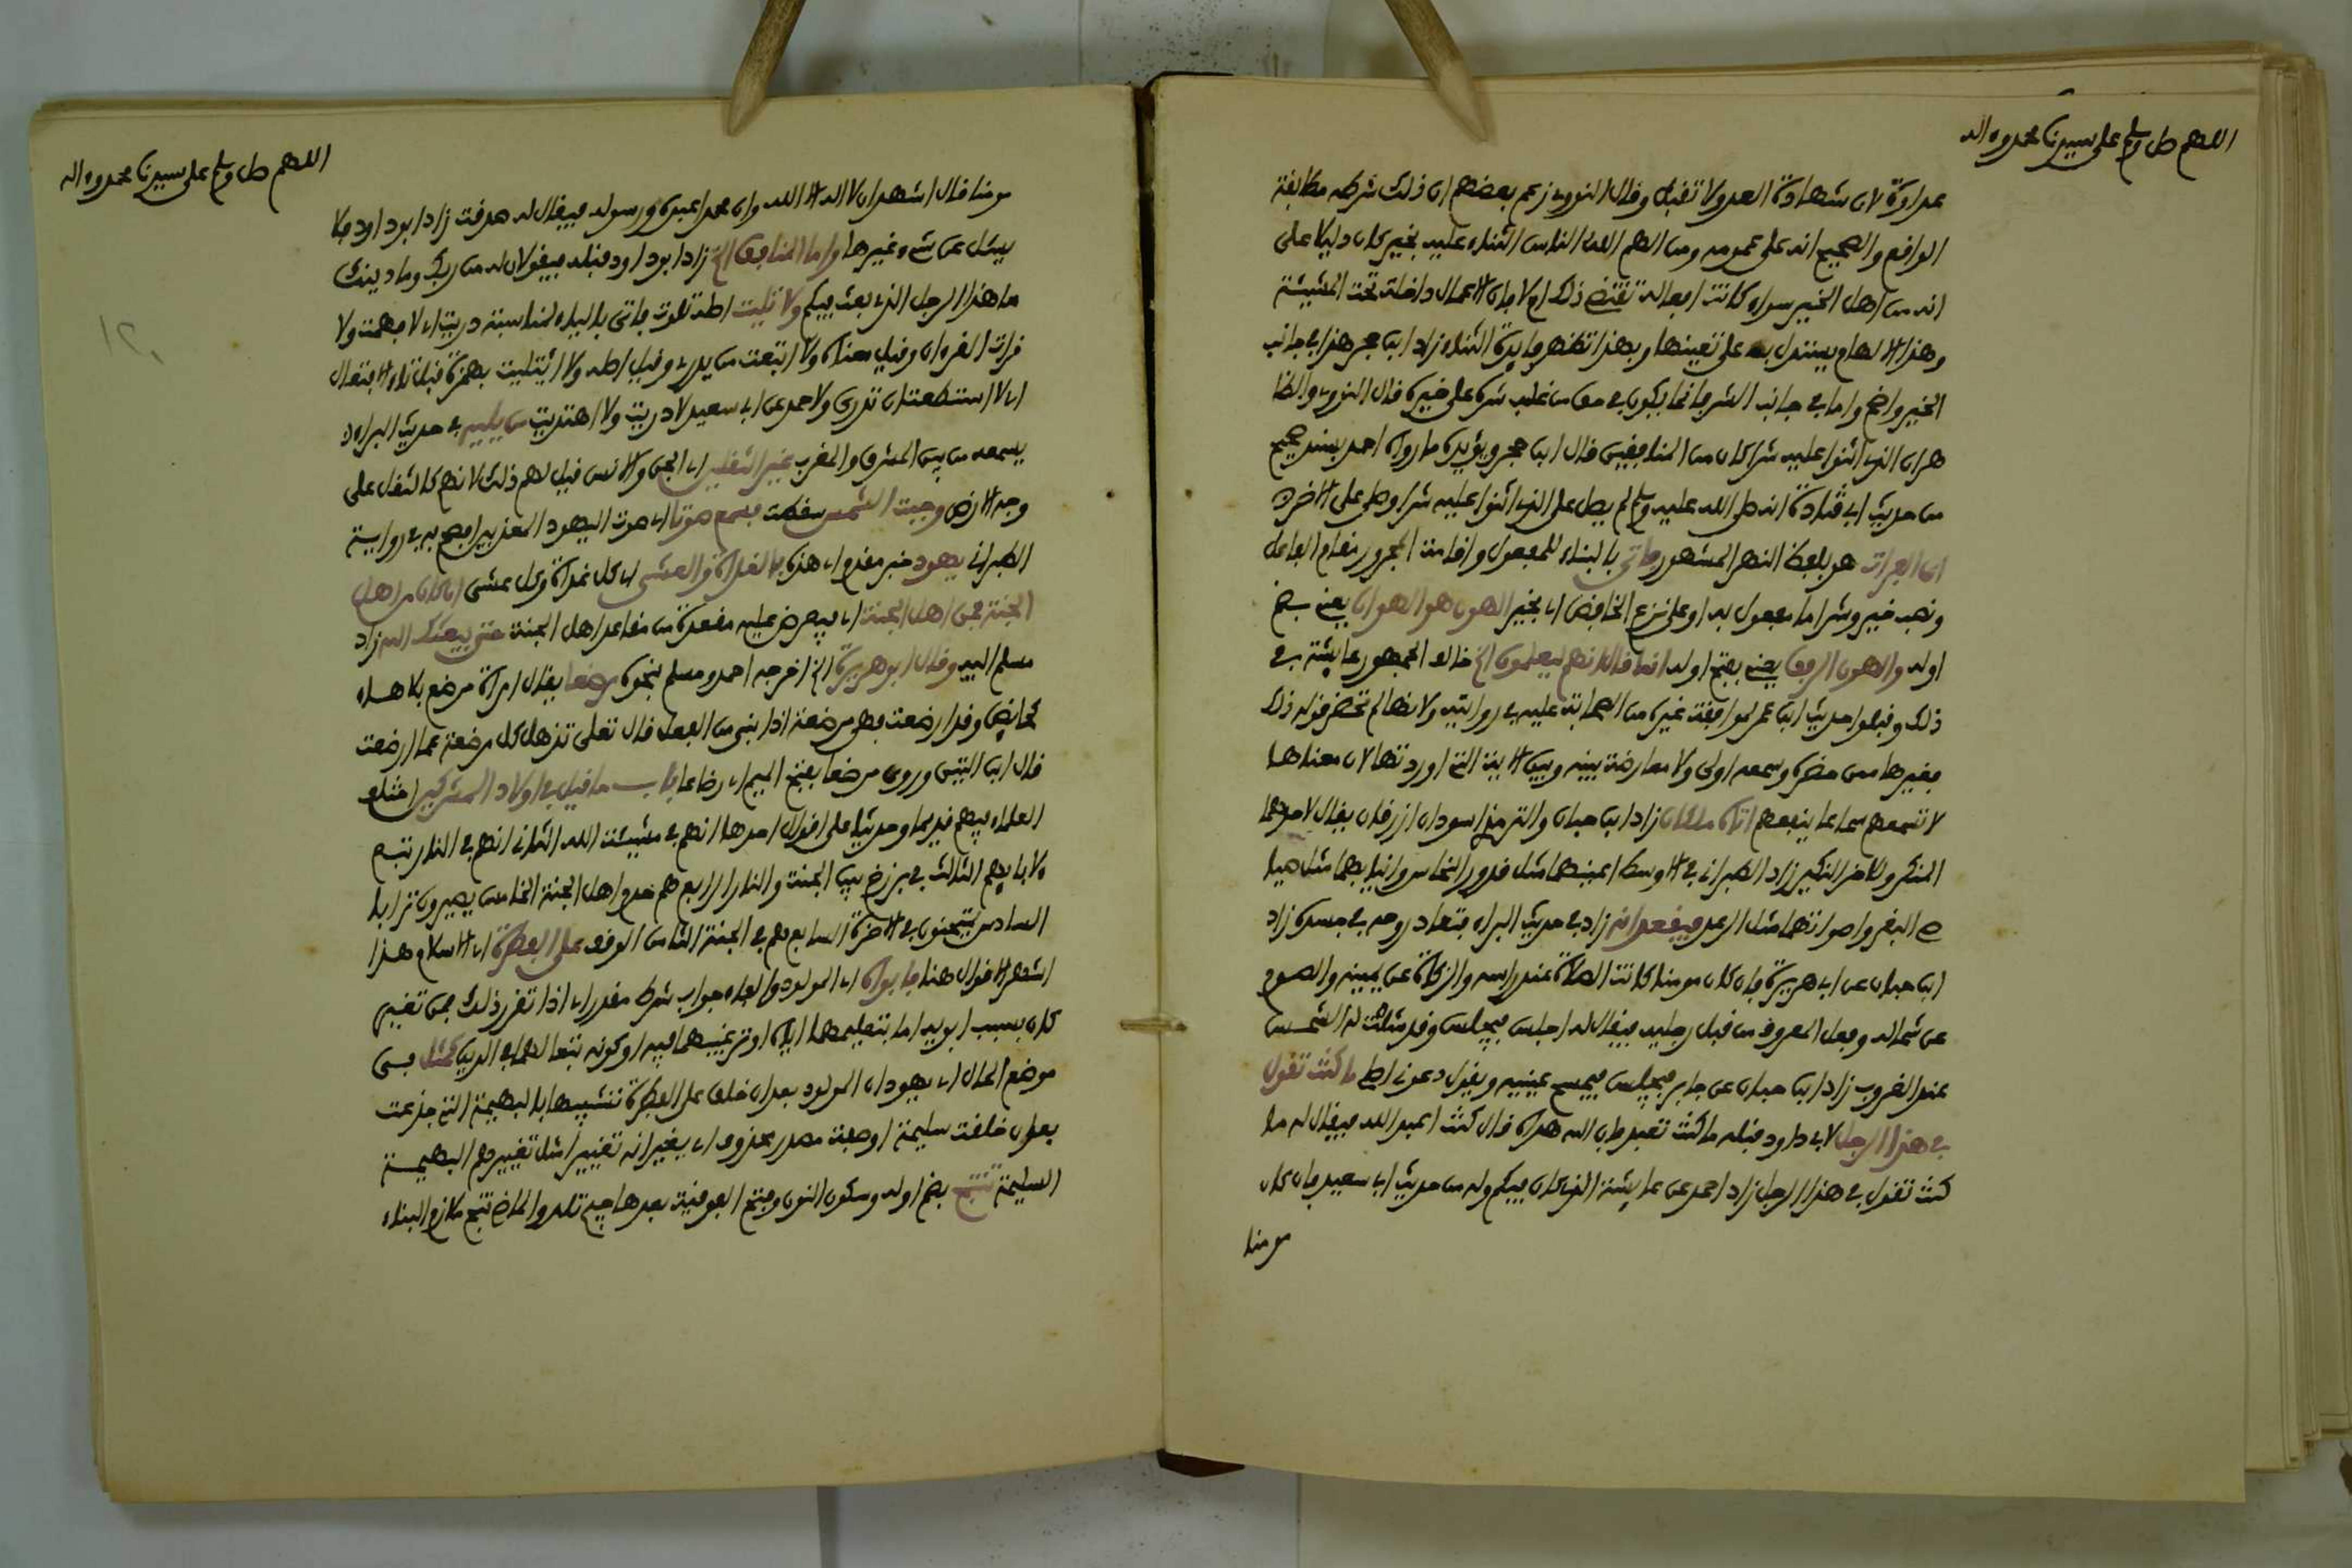 اللهم صل وسلم على سيدنا محمد وءاله
عداوة لان شهادة العدو لا تقبل وقال النووى زعم بعضهم ان ذلك شرطه مطابقة
الواقع والصحيح انه على عمومه ومن الهم الله الناس الثناء عليه بخير كان دليلا على
انه من اهل الخير سواء كانت افعاله تقتضى ذلك ام لا فان الاعمال داخلة تحت المشيئة
وهذا الالهام يستدل به على تعيينها وبهذا تظهر فايدة الثناء زاد ابن حجر هذا فى جانب
الخير واضح واما فى جانب الشر فانما يكون فى حق من غلب شره على خيره قال النووى والظا
هر ان الذى اثنوا عليه شرا كان من المنافقين قال ابن حجر ويؤيده ما رواه احمد بسند صحيح
من حديث ابى قتادة انه صلى الله عليه وسلم لم يصل على الذى اثنوا عليه شرا وصلى على الاخر
ابن الفرات هو بلفظ النهر المشهور فاثنى بالبناء للمفعول واقامة المجرور مقام الفاعل
ونصب خير وشر اما مفعول به او على نزع الخافض اى بخير الهون هو الهوان يعنى بضم
اوله والهون الرفق يعنى بفتح اوله انما قال انهم ليعلمون الخ خالف الجمهور عايشة فى
ذلك وقبلوا حديث ابن عمر لموافقة غيره من الصحابة عليه فى روايته ولانها لم تحضر قوله ذلك
فغيرها ممن حضره وسمعه اولى ولا معارضة بينه وبين الاية التى اوردتها لان معناها
لا تسمعهم سماعا ينفعهم اتاه ملكان زاد ابن حبان والترمذى اسودان ازرقان يقال لاحدهما
المنكر وللاخر النكير زاد الطبرانى فى الاوسط اعينهما مثل قدور النحاس وانيابهما مثل صيا
صى البقر واصواتهما مثل الرعد فيقعدانه زاد فى حديث البراء فتعاد روحه فى جسده زاد
ابن حبان عن ابى هريرة فان كان مومنا كانت الصلاة عند راسه والزكاة عن يمينه والصوم
عن شماله وفعل المعروف من قبل رجليه فيقال له اجلس فيجلس وقد مثلت له الشمس
عند الغروب زاد ابن حبان عن جابر فيجلس فيمسح عينيه ويقول دعونى اصلى ما كنت تقول
فى هذا الرجل لابى داود قبله ما كنت تعبد فان الله هداه قال كنت اعبد الله فيقال له ما
كنت تقول فى هذا الرجل زاد احمد عن عايشة الذى كان فيكم وله من حديث ابى سعيد فان كان
مومنا
اللهم صل وسلم على سيدنا محمد وءاله
مومنا قال اشهد ان لا اله الا الله وان محمدا عبده ورسوله فيقال له صدقت زاد ابو داود فلا
يسئل عن شىء غيرها واما المنافق الخ زاد ابو داود قبله فيقولان له من ربك وما دينك
ما هذا الرجل الذى بعث فيكم ولا تليت اصله تلوت فاتى بالياء لمناسبة دريت اى لا فهمت ولا
قرات القرءان وقيل معناه ولا اتبعت من يدرى وقيل اصله ولا ائتليت بهمزة قبل تاء الافتعال
اى لا استطعت ان تدرى ولاحمد عن ابى سعيد لا دريت ولا اهتديت من يليه فى حديث البراء
يسمعه من بين المشرق والمغرب غير الثقلين اى الجن والانس قيل لهم ذلك لانهم كالثقل على
وجه الارض وجبت الشمس سقطت فسمع صوتا اى صوت اليهود المعذبين افصح به فى رواية
الطبرانى يهود خبر مقدم اى هذه بالغداة والعشى اى كل غداة وكل عشى ان كان من اهل
الجنة فمن اهل الجنة اى فيعرض عليه مقعده من مقاعد اهل الجنة حتى يبعثك الله زاد
مسلم اليه وقال ابو هريرة الخ اخرجه احمد ومسلم نحوه مرضعا يقال امراة مرضع بلا هاء
كحايض وقد ارضعت فهى مرضعة اذا بنى من الفعل قال تعلى تذهل كل مرضعة عما ارضعت
قال ابن التين وروى مرضعا بفتح الميم اى رضاعا باب ما قيل فى اولاد المشركين اختلف
العلماء فيهم قديما وحديثا على اقوال احدها انهم فى مشيئة الله الثانى انهم فى النار تبع
لابايهم الثالث فى برزخ بين الجنة والنار الرابع هم خدم اهل الجنة الخامس يصيرون ترابا
السادس يمتحنون فى الاخرة السابع هم فى الجنة الثامن الوقف على الفطرة اى الاسلام هذا
اشهر الاقوال هنا فابواه اى المولود والفاء جواب شرط مقدر اى اذا تقرر ذلك فمن تغير
كان بسبب ابويه اما بتعليمهما اياه او ترغيبهما فيه او كونه تبعا لهما فى الدين كمثل فى
موضع الحال اى يهودان المولود بعد ان خلق على الفطرة تشبيها بالبهيمة التى جدعت
بعد ان خلقت سليمة او صفة مصدر محذوف اى يغيرانه تغييرا مثل تغييرهم البهيمة
السليمة تنتج بضم اوله وسكون النون وفتح الفوقية بعدها جيم تلد والماضى نتج ملازم البناء